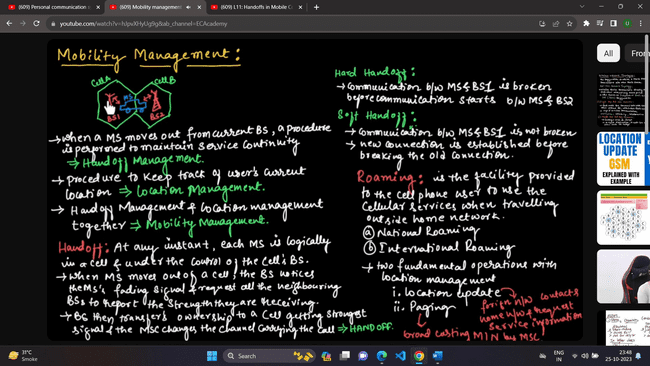 (609) Personal communication s
(609) Mobility management
(609) L11: Handoffs in Mobile C
youtube.com/watch?v=hJpvXHyUg9g&ab_channel=ECAcademy
Mobility Management:
Cell A
Cell B
MS
BS1
BS2
→ when a MS moves out from current BS, a procedure
is performed to maintain service continuity
⇒ Handoff Management.
→ procedure to keep track of user's current
location ⇒ Location Management.
→ Handoff Management & Location management
together ⇒ Mobility Management.
Handoff: At any instant, each MS is logically
in a cell & under the control of the cell's BS.
→ When MS moves out of a cell, the BS notices
the MS's fading signal & request all the neighbouring
BSs to Report the Strength they are receiving.
→ BS then transfers ownership to a Cell getting strongest
signal & the MSC changes the channel carrying the call ⇒ HANDOFF.
Hard Handoff:
→ Communication b/w MS & BS1 is broken
before communication starts b/w MS & BS2
Soft Handoff:
→ Communication b/w MS & BS1 is not broken
→ new connection is established before
breaking the old connection.
Roaming: is the facility provided
to the cell phone user to use the
Cellular services when travelling
outside home network.
a National Roaming
b International Roaming
→ two fundamental operations with
location management
i. location update
ii. Paging
n/w contacts
home n/w & request
service information
broad casting MIN by MSC
All
From
LOCATION
UPDATE
GSM
EXPLAINED WITH
EXAMPLE
31°C
Smoke
Search
ENG
IN
23:48
25-10-2023